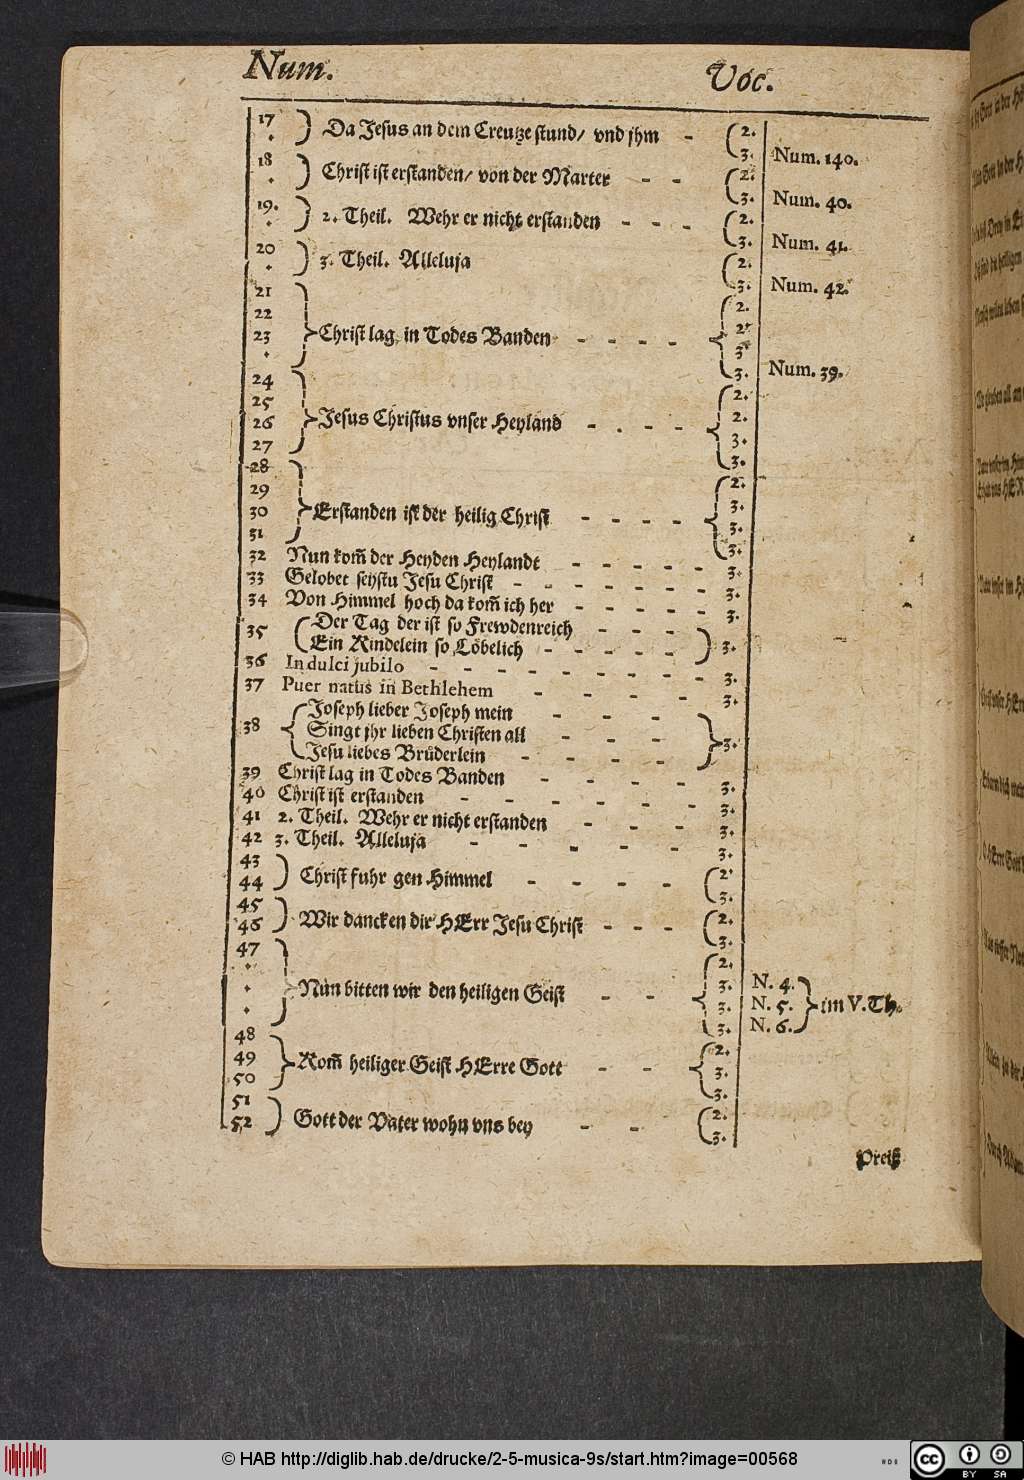 Num. Voc.
17 } Da Jesus an dem Creutze stund/ vnd jhm - 2.
* 3. Num. 140.
18 } Christ ist erstanden/ von der Marter - - 2.
* 3. Num. 40.
19. } 2. Theil. Wehr er nicht erstanden - - - 2.
* 3. Num. 41.
20 } 3. Theil. Alleluja 2.
* 3. Num. 42.
21 2.
22 2.
23 } Christ lag in Todes Banden - - - - 3.
* 3. Num. 39.
24 2.
25 2.
26 } Jesus Christus vnser Heyland - - - - 3.
27 3.
28 2.
29 3.
30 } Erstanden ist der heilig Christ - - - - 3.
31 3.
32 Nun kom̃ der Heyden Heylandt - - - - 3.
33 Gelobet seystu Jesu Christ - - - - - - 3.
34 Von Himmel hoch da kom̃ ich her - - - - 3.
35 { Der Tag der ist so Frewdenreich - - -
Ein Kindelein so Löbelich - - - - } 3.
36 In dulci jubilo - - - - - - - - 3.
37 Puer natus in Bethlehem - - - - 3.
Joseph lieber Joseph mein - - -
38 { Singt jhr lieben Christen all - - - } 3.
Jesu liebes Brüderlein - - - -
39 Christ lag in Todes Banden - - - - 3.
40 Christ ist erstanden - - - - - - 3.
41 2. Theil. Wehr er nicht erstanden - - - 3.
42 3. Theil. Alleluja - - - - - 3.
43 2.
44 } Christ fuhr gen Himmel - - - - 3.
45 2.
46 } Wir dancken dir HErr Jesu Christ - - - 3.
47 2.
* 3. N. 4.
* } Nun bitten wir den heiligen Geist - - 3. N. 5. } im V. Th.
* 3. N. 6.
48 2.
49 } Kom̃ heiliger Geist HErre Gott - - 3.
50 3.
51 2.
52 } Gott der Vater wohn vns bey - - 3.
Preiß
© HAB http://diglib.hab.de/drucke/2-5-musica-9s/start.htm?image=00568
cc BY SA